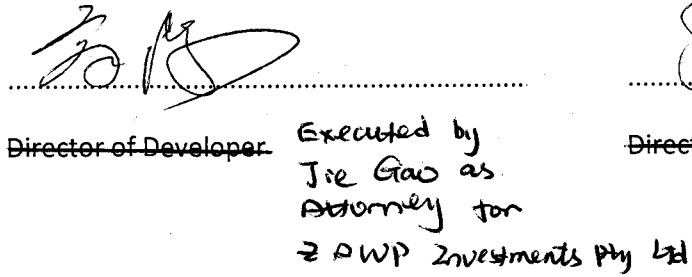 高洁
Director of Developer
Direct
Executed by
Jie Gao as
Attorney for
Z AWP Investments Pty Ltd